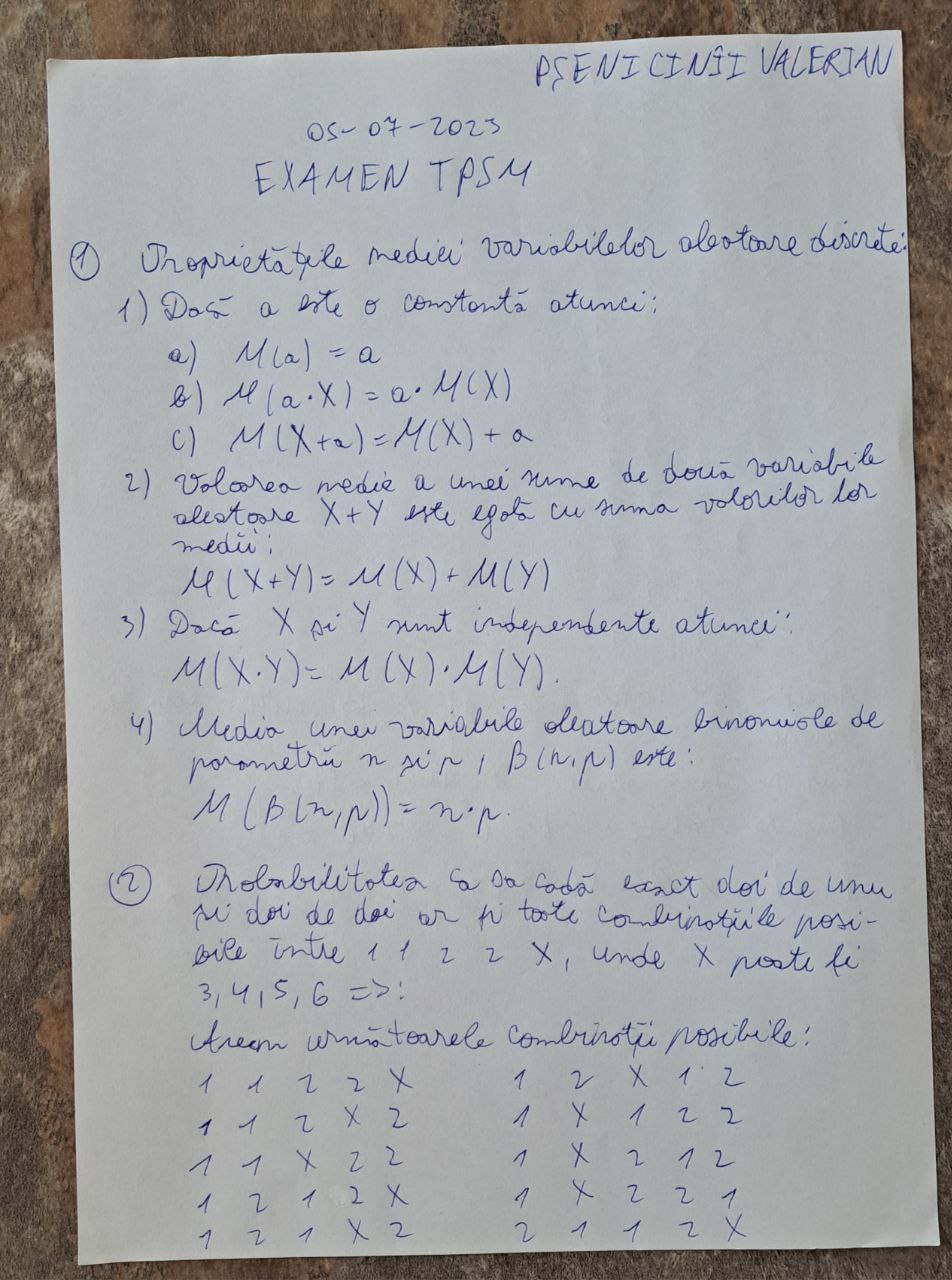 PȘENICINÎI VALERIAN
05-07-2023
EXAMEN TPSM
① Proprietățile mediei variabilelor aleatoare discrete:
1) Dacă a este o constantă atunci:
a) M(a) = a
b) M(a·X) = a·M(X)
c) M(X+a) = M(X) + a
2) Valoarea medie a unei sume de două variabile
aleatoare X+Y este egală cu suma valorilor lor
medii:
M(X+Y) = M(X) + M(Y)
3) Dacă X și Y sunt independente atunci:
M(X·Y) = M(X)·M(Y).
4) Media unei variabile aleatoare binomiale de
parametrii n și p, B(n,p) este:
M(B(n,p)) = n·p.
② Probabilitatea ca sa cadă exact doi de unu
și doi de doi ar fi toate combinațiile posi-
bile între 1 1 2 2 X, unde X poate fi
3, 4, 5, 6 =>:
Avem următoarele combinații posibile:
1 1 2 2 X 1 2 X 1 2
1 1 2 X 2 1 X 1 2 2
1 1 X 2 2 1 X 2 1 2
1 2 1 2 X 1 X 2 2 1
1 2 1 X 2 2 1 1 2 X